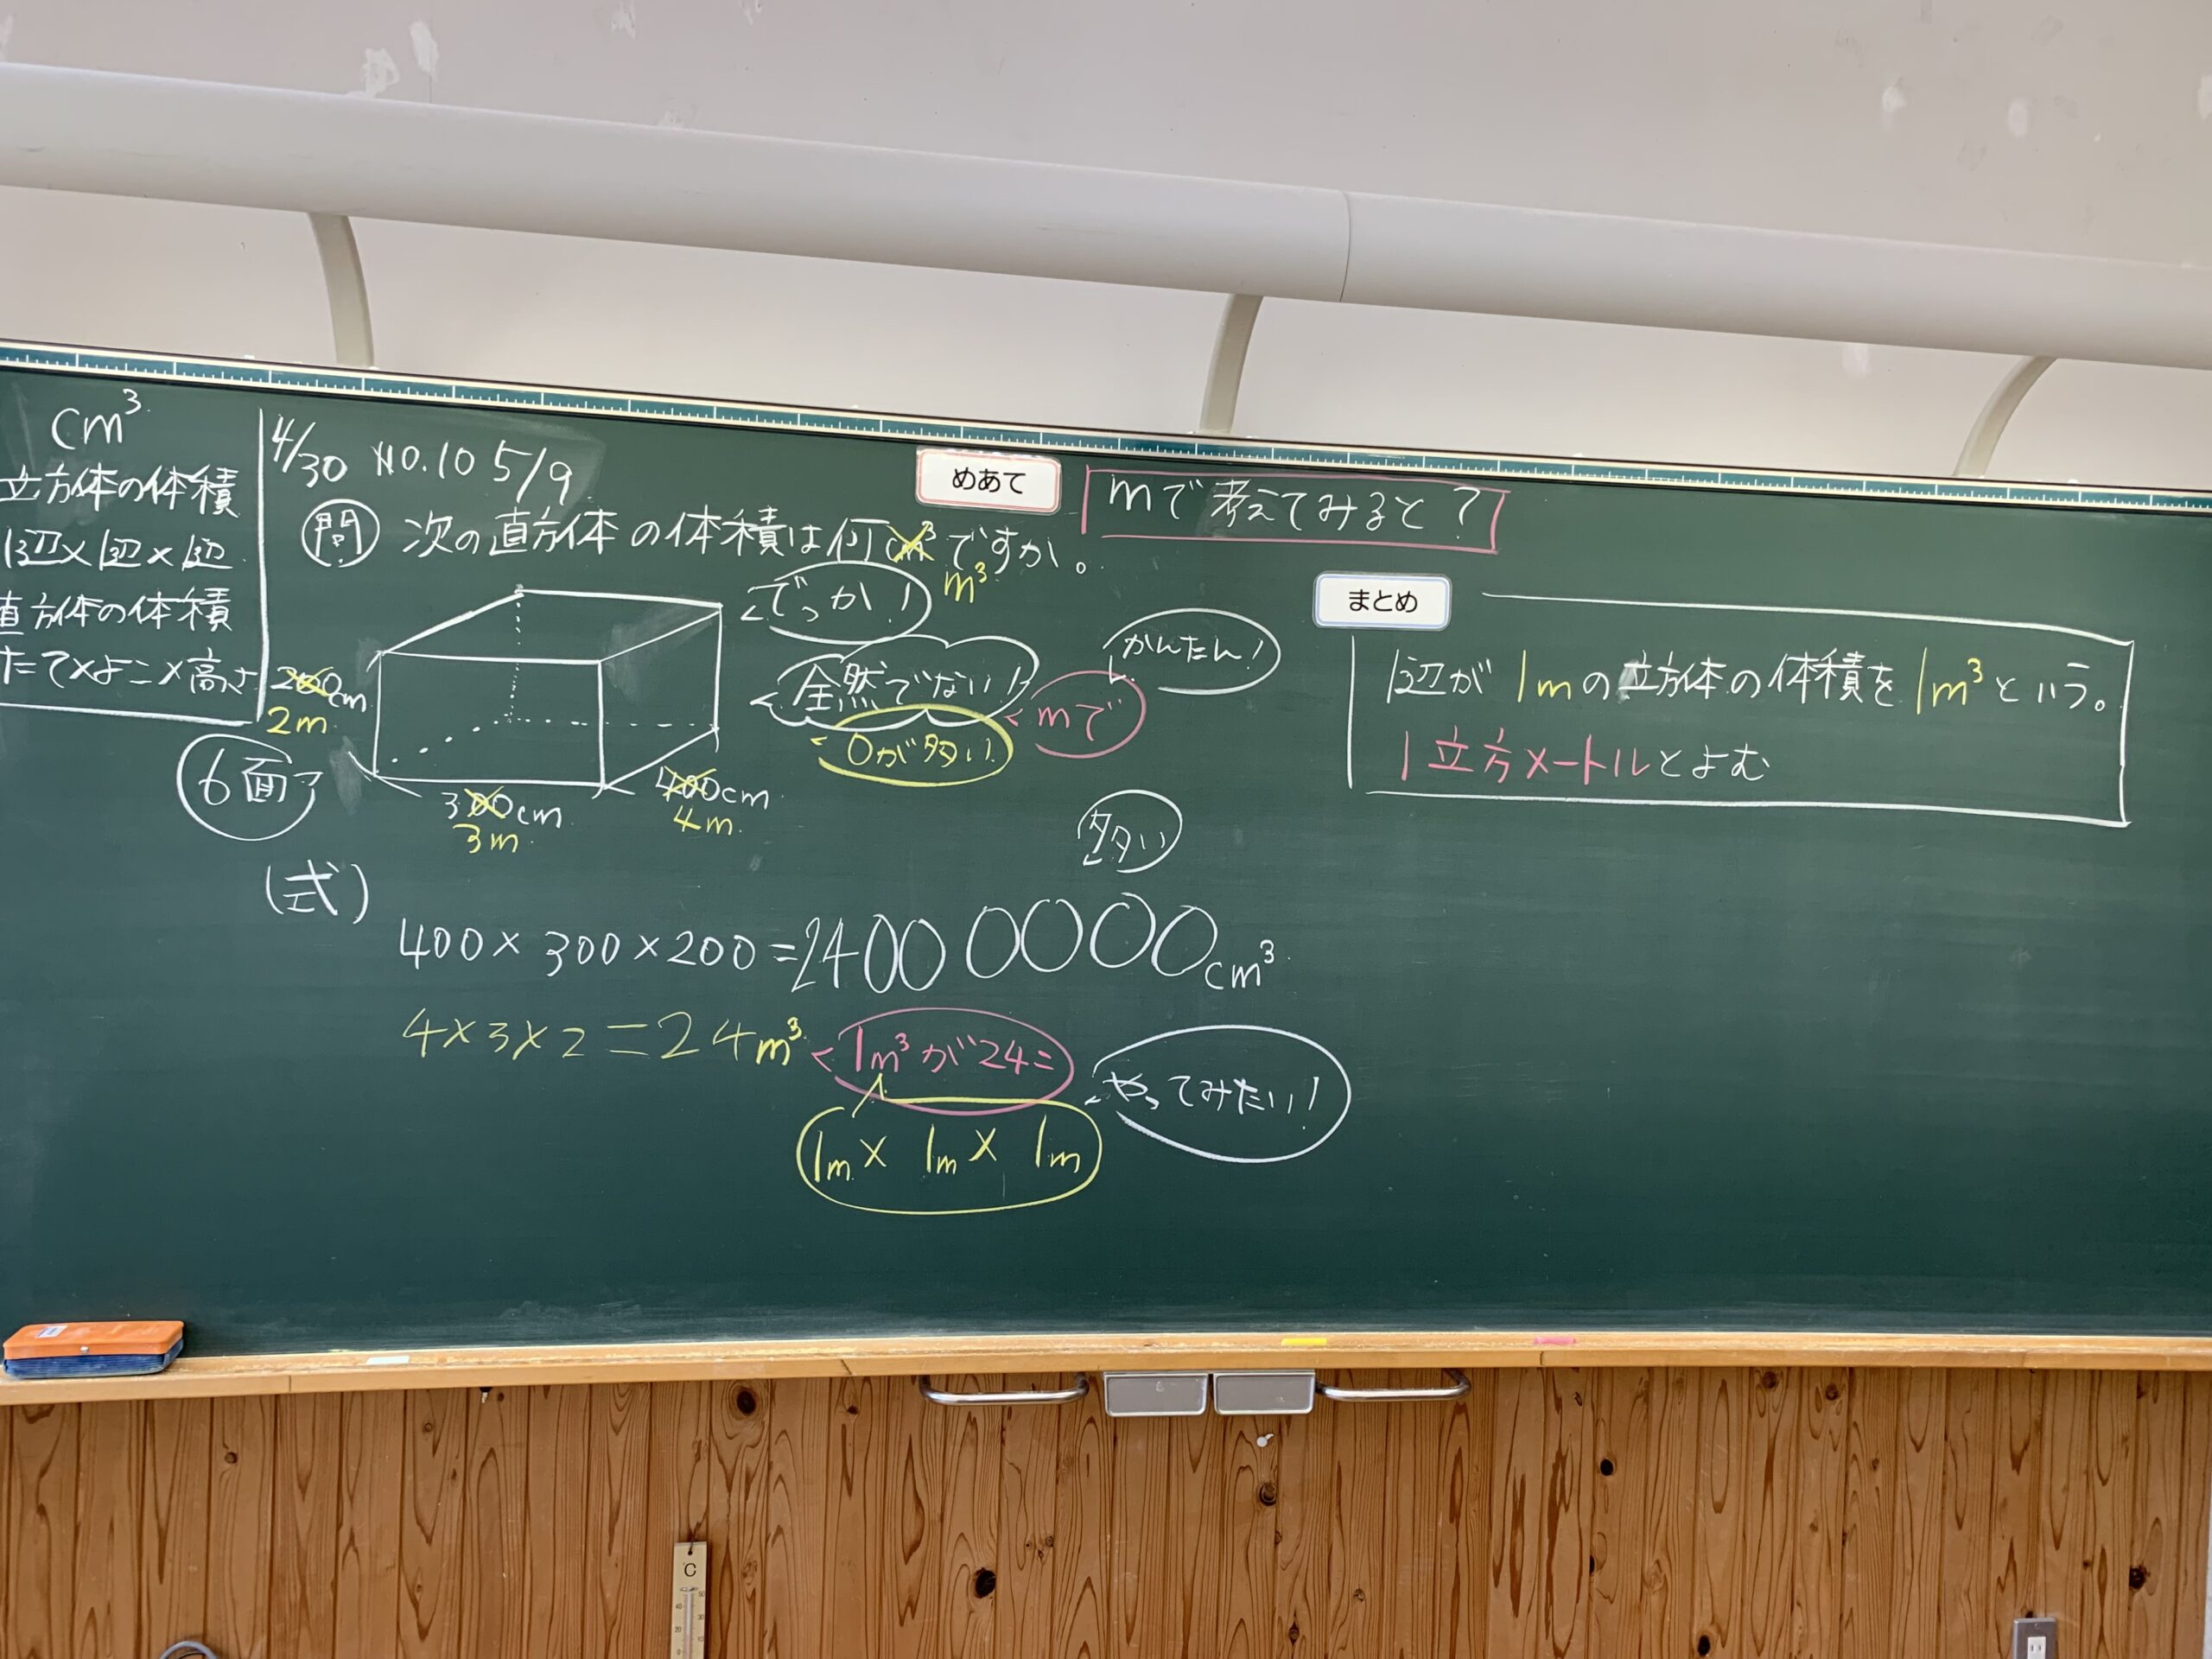 cm³
立方体の体積
1辺×1辺×1辺
直方体の体積
たて×よこ×高さ
4/30 NO.10 5/9
問 次の直方体の体積は何cm³ですか。
m³
めあて
mで考えてみると?
でっか!
全然でない!
0が多い!
mで
かんたん!
200cm
2m
6面
300cm
3m
400cm
4m
多い
(式)
400×300×200=24000000cm³
4×3×2=24m³
1m³が24こ
やってみたい!
1m×1m×1m
まとめ
1辺が1mの立方体の体積を1m³という。
1立方メートルとよむ
C